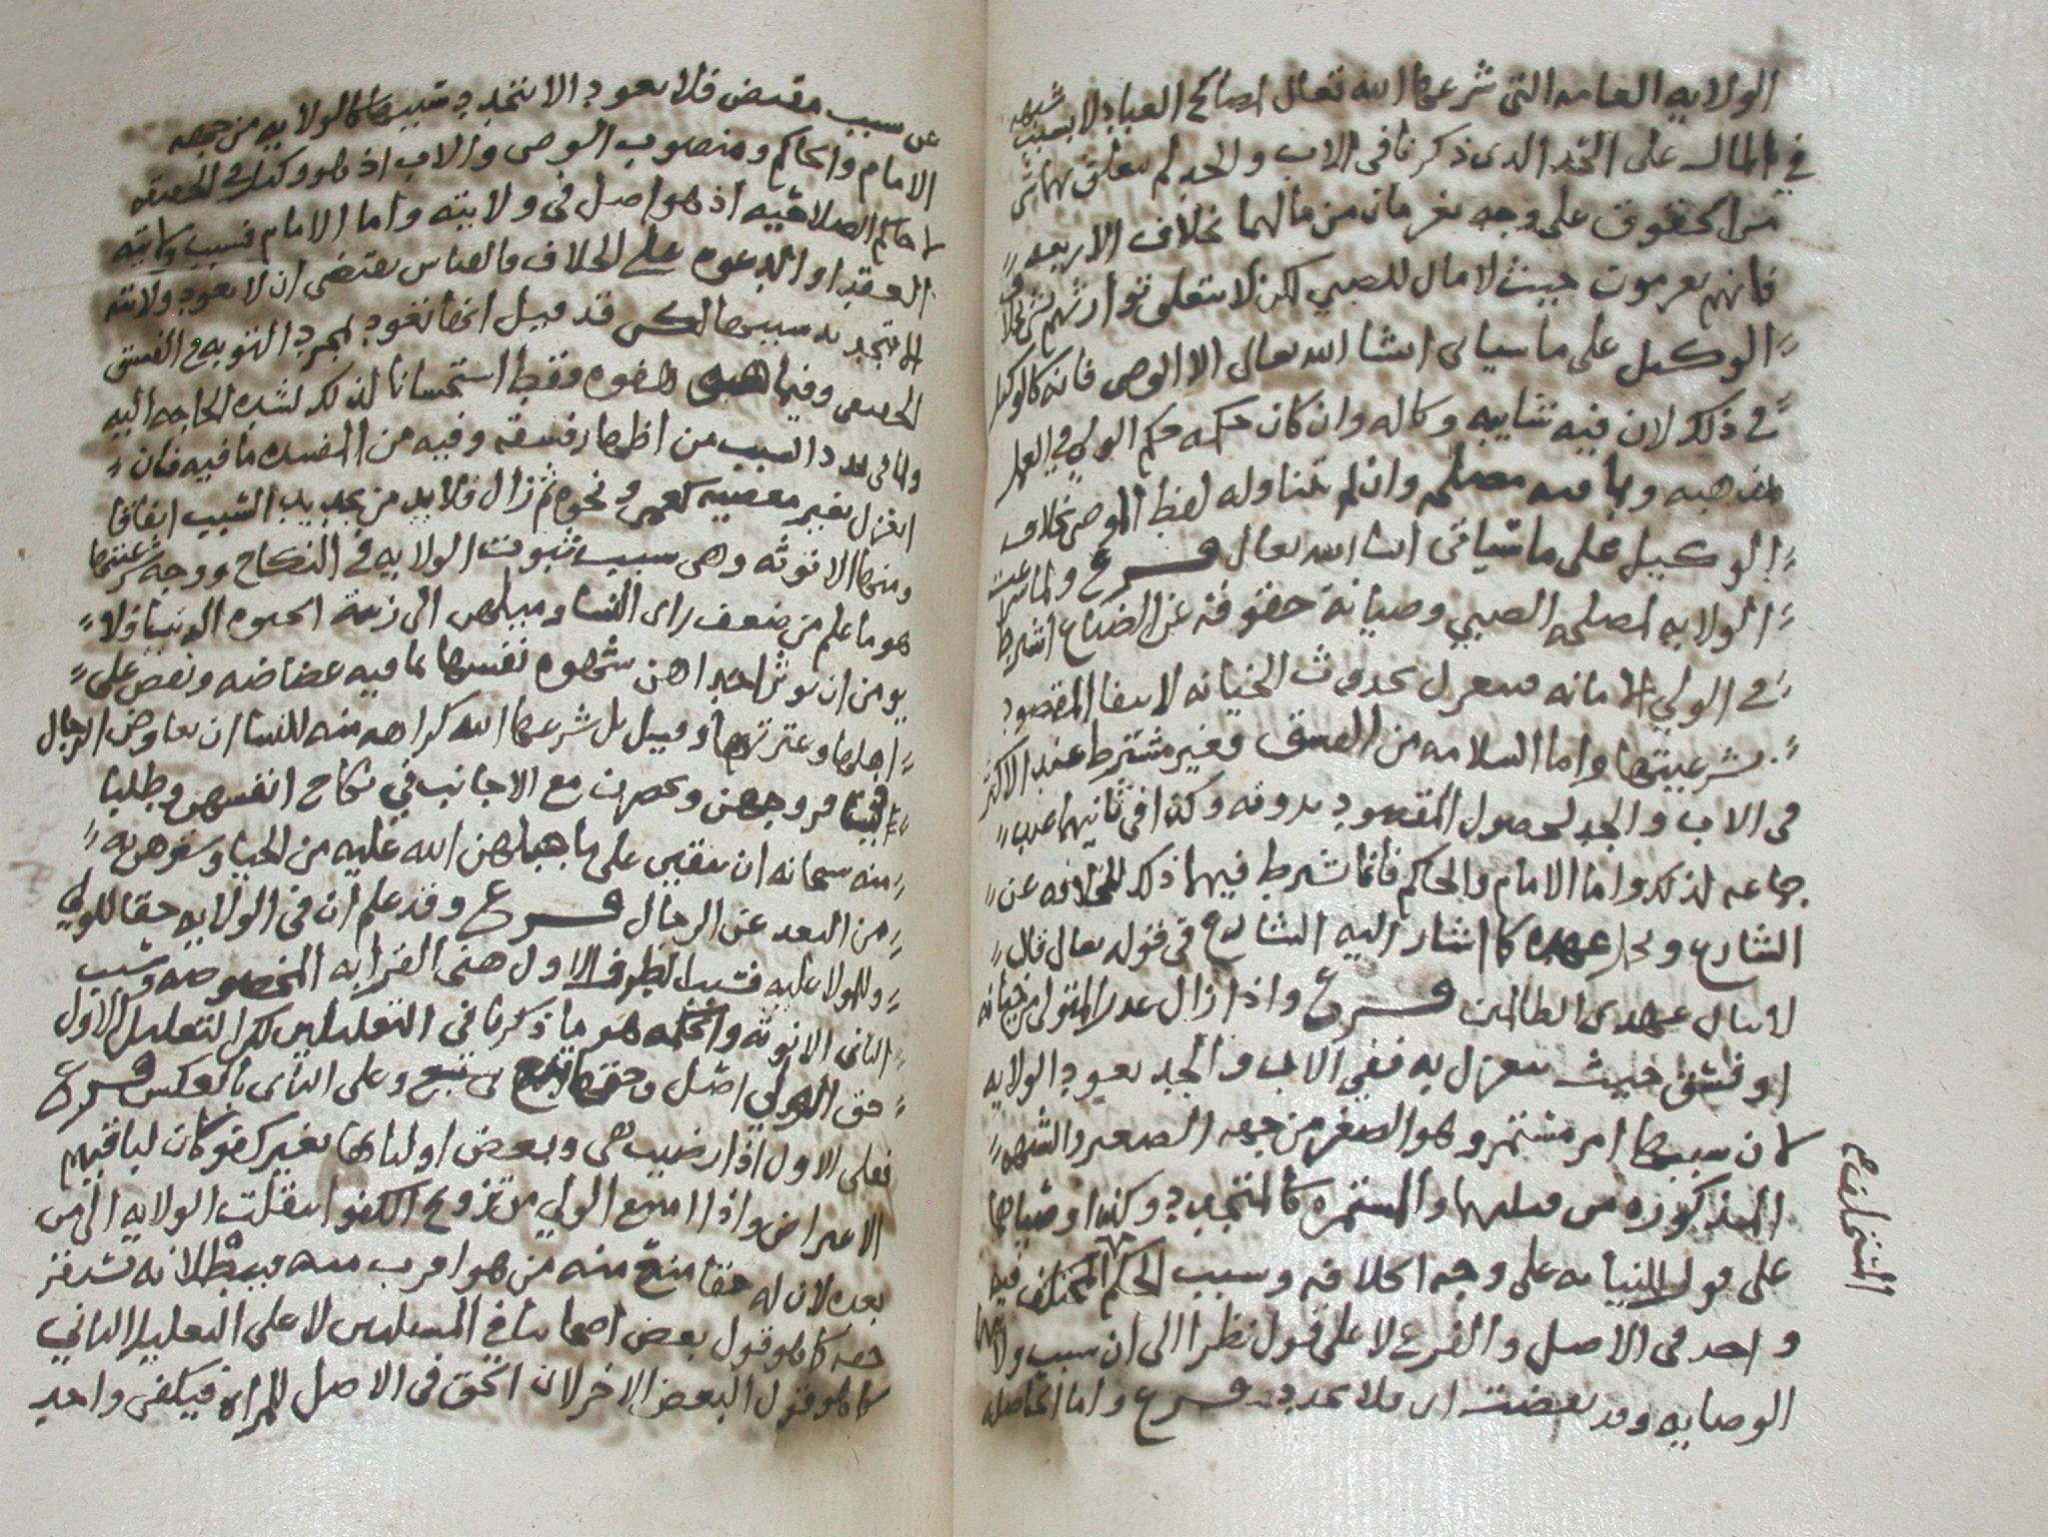 الولايه العامه التي شرعها الله تعالى لصالح العباد لا بسبب شبهه
في المال على النحو الذي ذكرنا في الاب والجد لم يتعلق بهما شي
من الحقوق على وجه يغرمان من مالهما بخلاف الاربعه
فانهم يغرمون حيث لا مال للصبي لكن لا يتعلق بوارثهم بخلاف
الوكيل على ما سياتي انشا الله تعالى الا الوصي فانه كالوكيل
في ذلك لان فيه شايبه وكاله وان كان حكمه حكم الولي في العمل
بمذهبه وبما فيه مصلحه وان لم يتناوله لفظ الموصي بخلاف
الوكيل على ما سياتي انشا الله تعالى فرع ولما شرعت
الولايه لمصلحه الصبي وصيانة حقوقه عن الضياع اشترط
في الولي الامانه فينعزل بحدوث الخيانه لانتفا المقصود
بشرعيتها واما السلامه من الفسق فغير مشترط عند الاكثر
في الاب والجد لحصول المقصود بدونه وكذا في ثانيهما عند
جماعه لذلك واما الامام والحاكم فانما شرط فيهما ذلك للخلافه عن
الشارع وتحمل عهده كما اشار اليه الشارع في قوله تعالى قال
لا ينال عهدي الظالمين فرع واذا زال عذر المتولي من خيانه
او فسق حيث ينعزل به ففي الاب والجد يعود الولايه
لان سببها امر مستمر وهو الصغر من جهه الصغير والشبهه
المذكوره من قبلهما والمستمره كالمتجدد وكذا وصياهما
على قول النيابه على وجه الخلافه وسبب الحكم المختلف فيه
واحد في الاصل والفرع لا على قول نظرا الى ان سبب ولايتهما
الوصايه وقد بعضت اي فلا تجدد فرع واما الحاصله
المتخالفه
عن سبب مقتض فلا يعود الا بتجدد سببها كالولايه من جهه
الامام والحاكم ومنصوب الوصي والاب اذ هو وكيل في الحقيقه
لا حاكم الصلاحيه اذ هو اصل في ولايته واما الامام فسبب ولايته
العقد او الدعوه على الخلاف فالقياس يقتضي ان لا يعود ولايته
الا بتجديد سببها لكن قد قيل انها تعود بمجرد التوبه في الفسق
الحقيقي وفيما هو هفوه فقط استحسانا لذلك لشده الحاجه اليه
ولما في تجدد السبب من اظهار فسقه وفيه من المفسده ما فيه فان
انعزل بغير معصيه كعمى ونحوه ثم زال فلا بد من تجديد السبب اتفاقا
ومنها الانوثه وهي سبب ثبوت الولايه في النكاح ووجه شرعيتها
هو ما علم من ضعف راي النسا وميلهن الى زينة الحيوه الدنيا فلا
يومن ان توثر احداهن شهوه نفسها بما فيه غضاضه ونقص على
اهلها وعترتها وقيل بل شرعها الله كراهه منه للنسا ان تعاوض الرجال
في فروجهن ويحضرن مع الاجانب في نكاح انفسهن وطلبا
منه سبحانه ان يبقين على ما جبلهن الله عليه من الحيا وسترهن به
من البعد عن الرجال فرع وقد علم ان في الولايه حقا للولي
وللمولا عليه فسبب الطرف الاول هي القرابه المخصوصه وسبب
الثاني الانوثه والحكمه هو ما ذكرنا في التعليلين لكن التعليل الاول
حق الولي اصل وحقها تبع وعلى الثاني بالعكس فرع
فعلى الاول اذا رضيت هي وبعض اوليائها بغير كفو كان لباقيهم
الاعتراض واذا امتنع الولي من تزويج الكفو انتقلت الولايه الى من
بعده لان له حقا منع منه من هو اقرب منه فيبطلانه يستقر
حقه كما هو قول بعض اصحابنا في المسلتين لا على التعليل الثاني
كما هو قول البعض الاخر لان الحق في الاصل للمراه فيكفي واحد